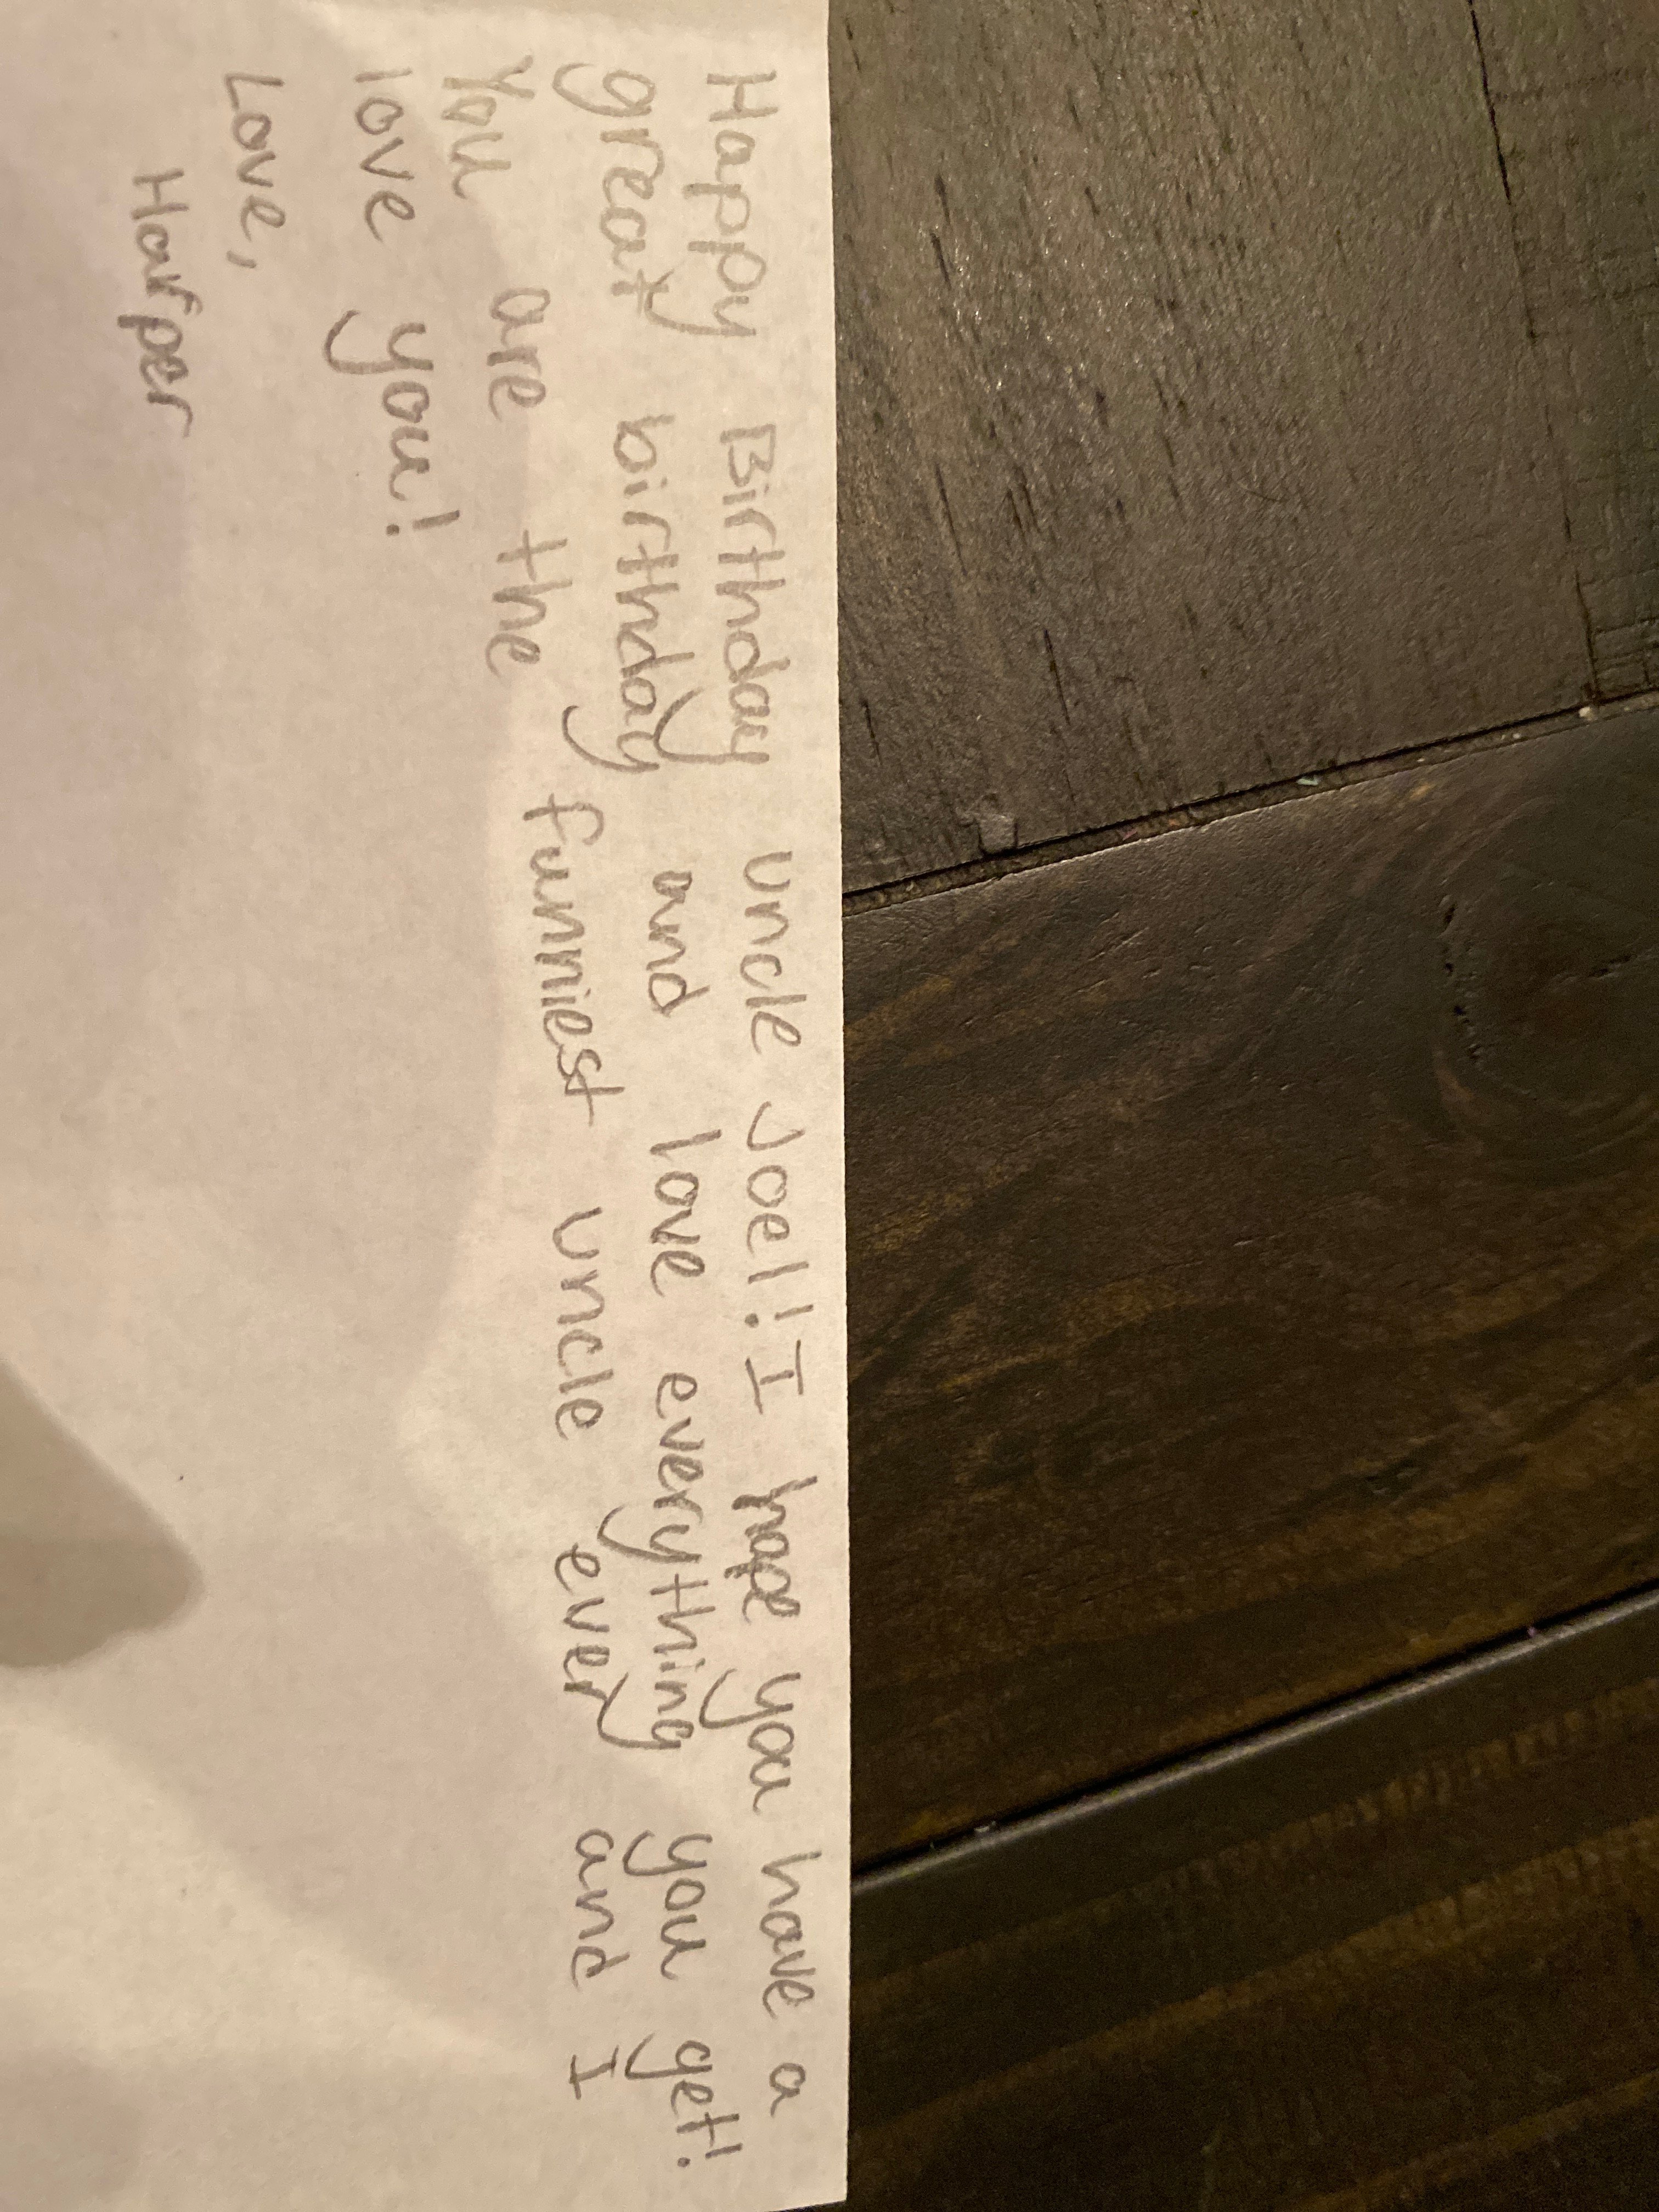 Happy Birthday uncle Joel! I hope you have a
great birthday and love everything you get!
You are the funniest uncle ever and I
love you!
Love,
Harper